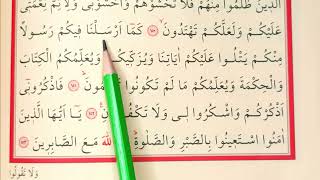 الَّذِينَ ظَلَمُوا مِنْهُمْ فَلَا تَخْشَوْهُمْ وَاخْشَوْنِي وَلِاُتِمَّ نِعْمَتِي
عَلَيْكُمْ وَلَعَلَّكُمْ تَهْتَدُونَ ١٥٠ كَمَا اَرْسَلْنَا فِيكُمْ رَسُولًا
مِنْكُمْ يَتْلُوا عَلَيْكُمْ اٰيَاتِنَا وَيُزَكِّيكُمْ وَيُعَلِّمُكُمُ الْكِتَابَ
وَالْحِكْمَةَ وَيُعَلِّمُكُمْ مَا لَمْ تَكُونُوا تَعْلَمُونَ ١٥١ فَاذْكُرُونِي
اَذْكُرْكُمْ وَاشْكُرُوا لِي وَلَا تَكْفُرُونِ ١٥٢ يَا اَيُّهَا الَّذِينَ
اٰمَنُوا اسْتَعِينُوا بِالصَّبْرِ وَالصَّلٰوةِ اللّٰهَ مَعَ الصَّابِرِينَ ١٥٣
وَلَا تَقُولُوا